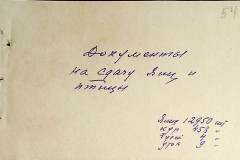 54
Документы
на сдачу яиц и
птицы
Яиц 12950 шт
кур 158 "
Гусей 4 "
уток 9 "